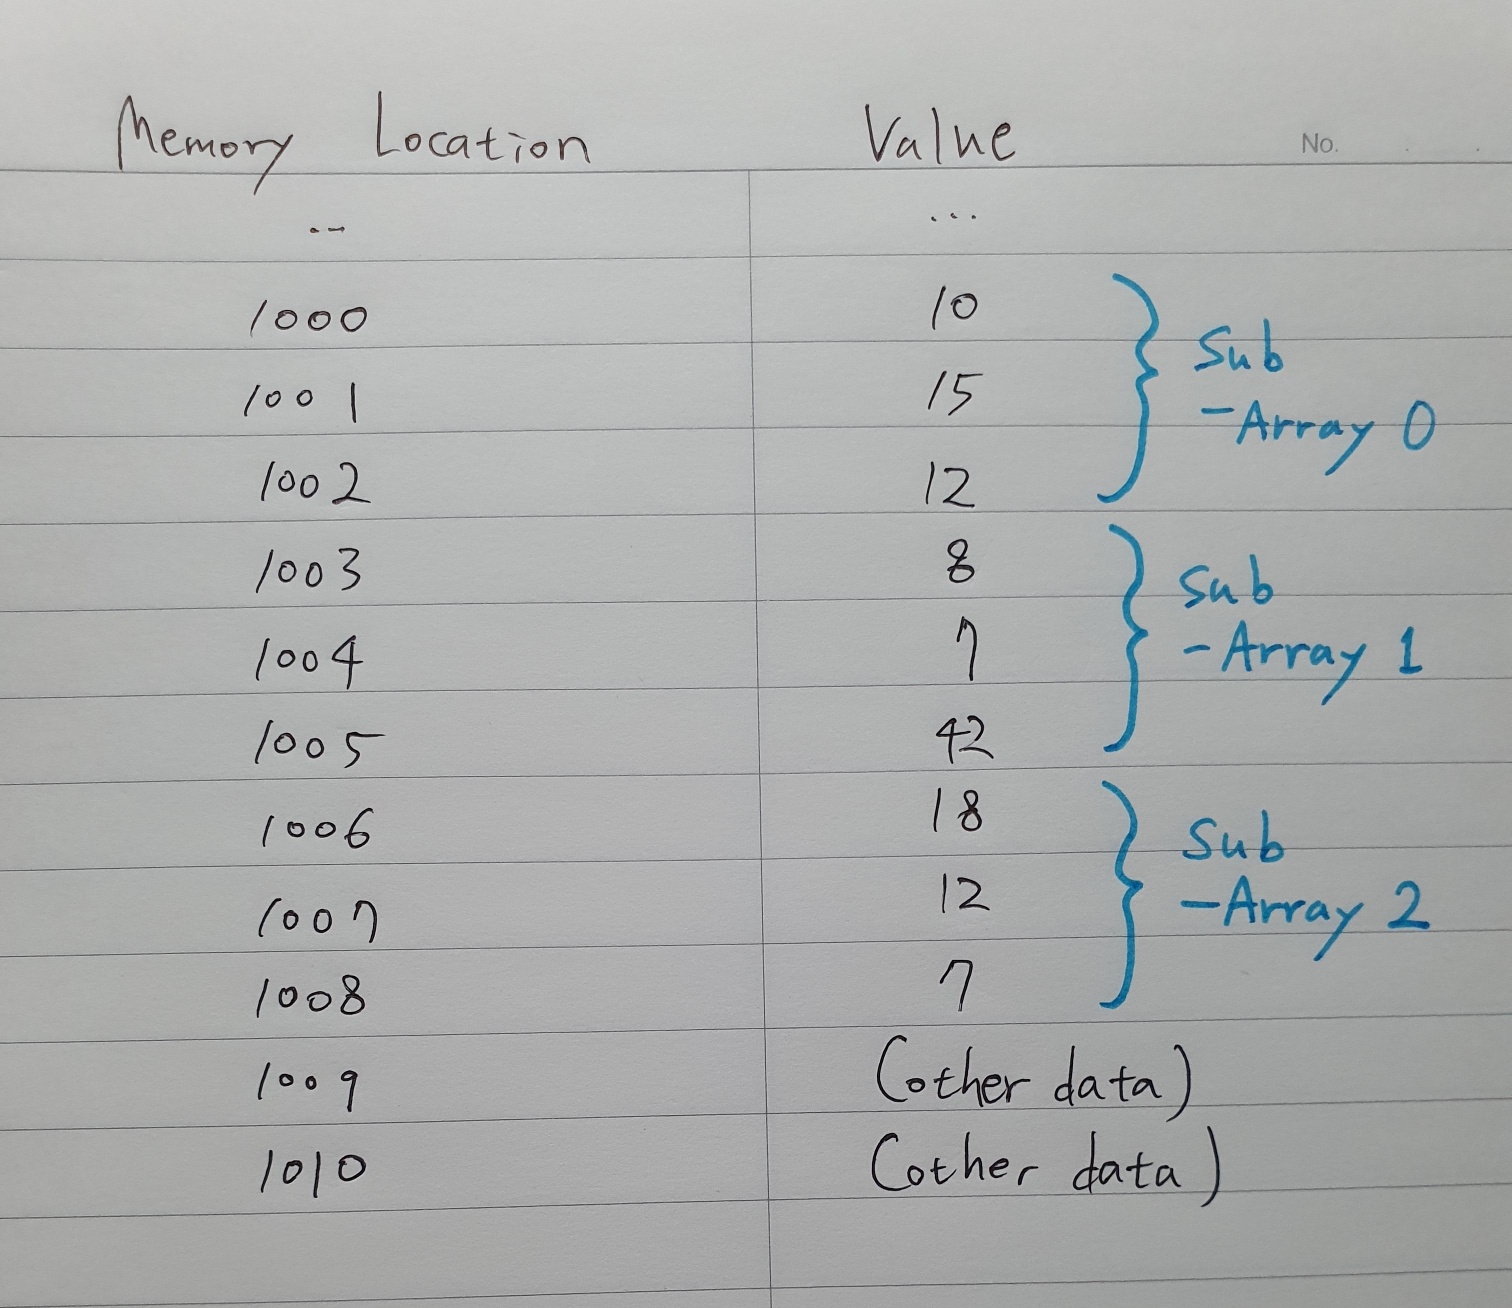 Memory Location Value No.
.. ...
1000 10
Sub
1001 15
-Array 0
1002 12
1003 8
Sub
1004 7
-Array 1
1005 42
1006 18
Sub
1007 12
-Array 2
1008 7
1009 (other data)
1010 (other data)